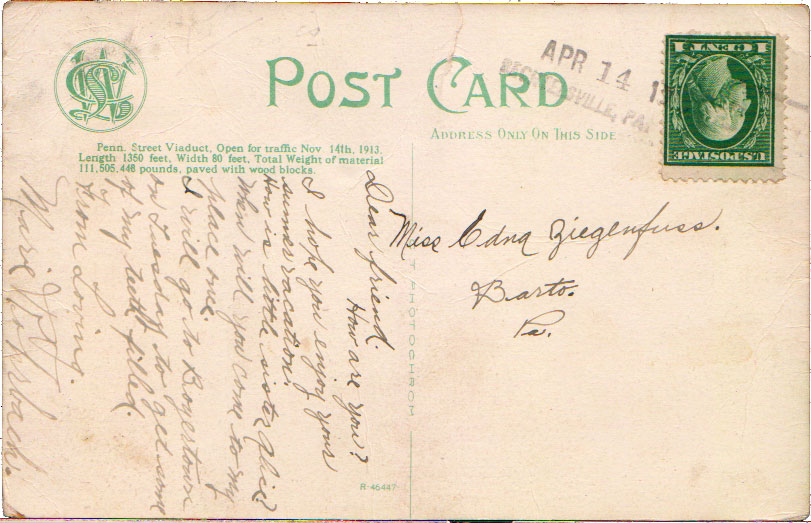 POST CARD
ADDRESS ONLY ON THIS SIDE
APR 14 1
BECHTELSVILLE, PA.
1 CENT 1
U.S. POSTAGE
Penn. Street Viaduct, Open for traffic Nov 14th, 1913.
Length 1350 feet, Width 80 feet, Total Weight of material
111,505,448 pounds, paved with wood blocks.
Dear friend.
How are you?
I hope you enjoy your
summer vacation.
How is little sister Alice?
When will you come to my
place me.
I will go to Boyertown
on Tuesday to get some
of my teeth filled.
By
From Loving.
Marie
Miss Edna Ziegenfuss.
Barto.
Pa.
R-46447